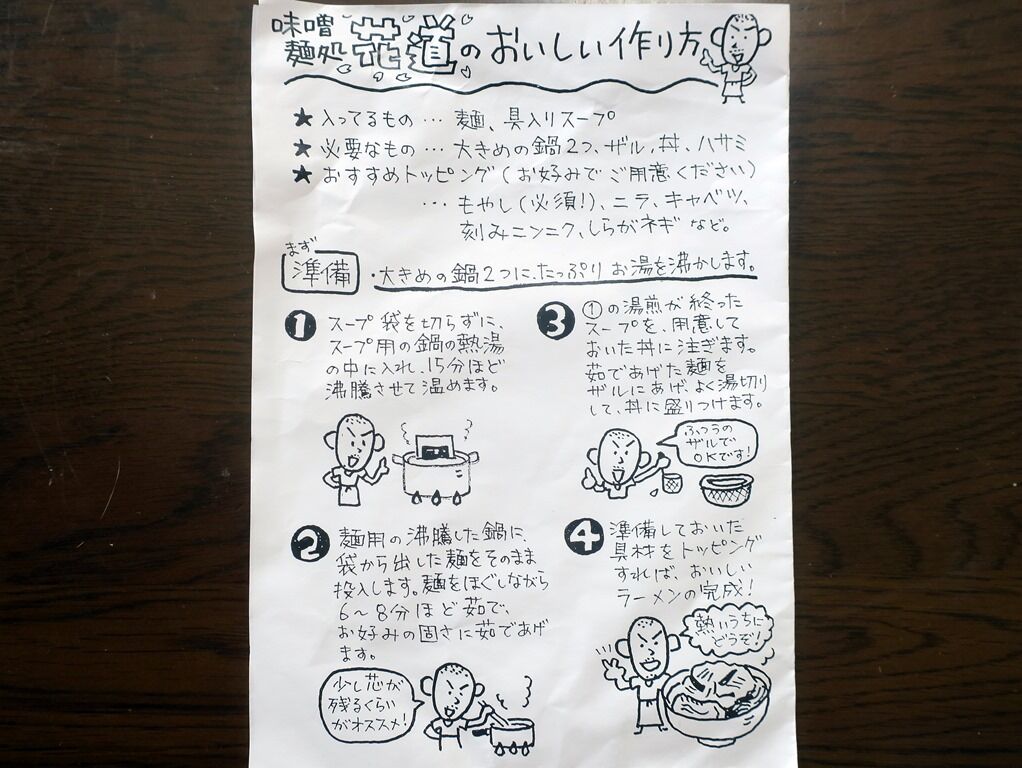 味噌
麺処 花道のおいしい作り方
★入ってるもの… 麺、具入りスープ
★必要なもの… 大きめの鍋2つ、ザル、丼、ハサミ
★おすすめトッピング(お好みでご用意ください)
… もやし(必須!)、ニラ、キャベツ、
刻みニンニク、しらがネギなど。
まず
準備 ・大きめの鍋2つに、たっぷりお湯を沸かします。
❶ スープ袋を切らずに、
スープ用の鍋の熱湯
の中に入れ、15分ほど
沸騰させて温めます。
❷ 麺用の沸騰した鍋に、
袋から出した麺をそのまま
投入します。麺をほぐしながら
6〜8分ほど茹で、
お好みの固さに茹であげ
ます。
少し芯が
残るくらい
がオススメ!
❸ ①の湯煎が終った
スープを、用意して
おいた丼に注ぎます。
茹であげた麺を
ザルにあげ、よく湯切り
して、丼に盛りつけます。
ふつうの
ザルで
OKです!
❹ 準備しておいた
具材をトッピング
すれば、おいしい
ラーメンの完成!
熱いうちに
どうぞ!